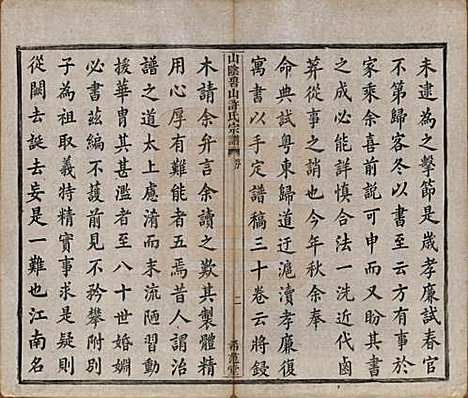 未逮為之擊節是歲孝廉試春官
不第歸客冬以書至云方有事於
家乘余喜前説可申而又盼其書
之成必能詳慎合法一洗近代鹵
莽從事之誚也今年秋余奉
命典試粵東歸道迂滬瀆孝廉復
寓書以手定譜稿三十卷云將鋟
山陰碧山許氏宗譜
序
二
木請余弁言余讀之歎其製體精
用心厚有難能者五焉昔人謂治
譜之道有二慮淆而末流陋習動
援華胄其甚濫者至八十世婚姻
必書茲編矯前見不矜攀附別
子為祖取精實事求是疑則
從闕去妄是一難也江南名